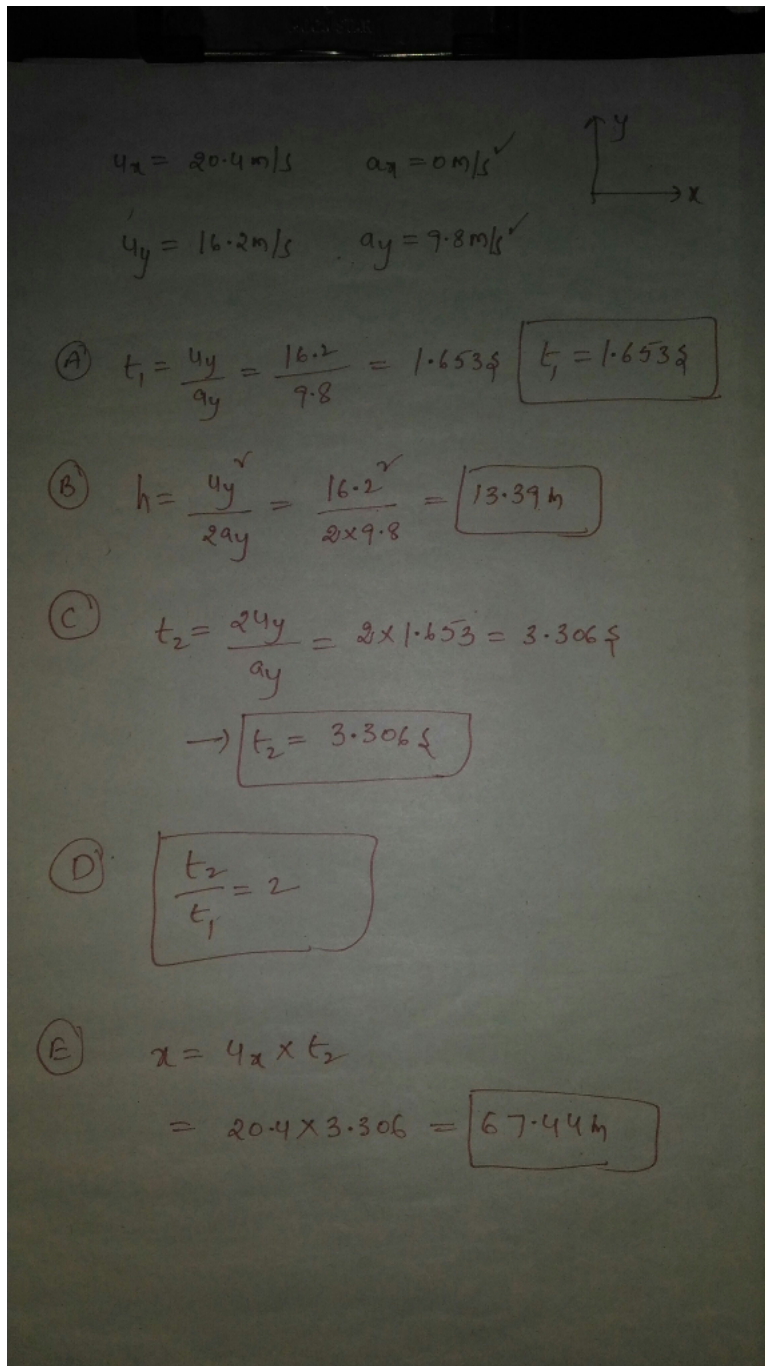 y
u_x = 20.4 m/s a_x = 0 m/s²
x
u_y = 16.2 m/s a_y = 9.8 m/s²
(A) t₁ = u_y / a_y = 16.2 / 9.8 = 1.653 s t₁ = 1.653 s
(B) h = u_y² / 2a_y = 16.2² / 2×9.8 = 13.39 m
(C) t₂ = 2u_y / a_y = 2×1.653 = 3.306 s
→ t₂ = 3.306 s
(D) t₂ / t₁ = 2
(E) x = u_x × t₂
= 20.4 × 3.306 = 67.44 m